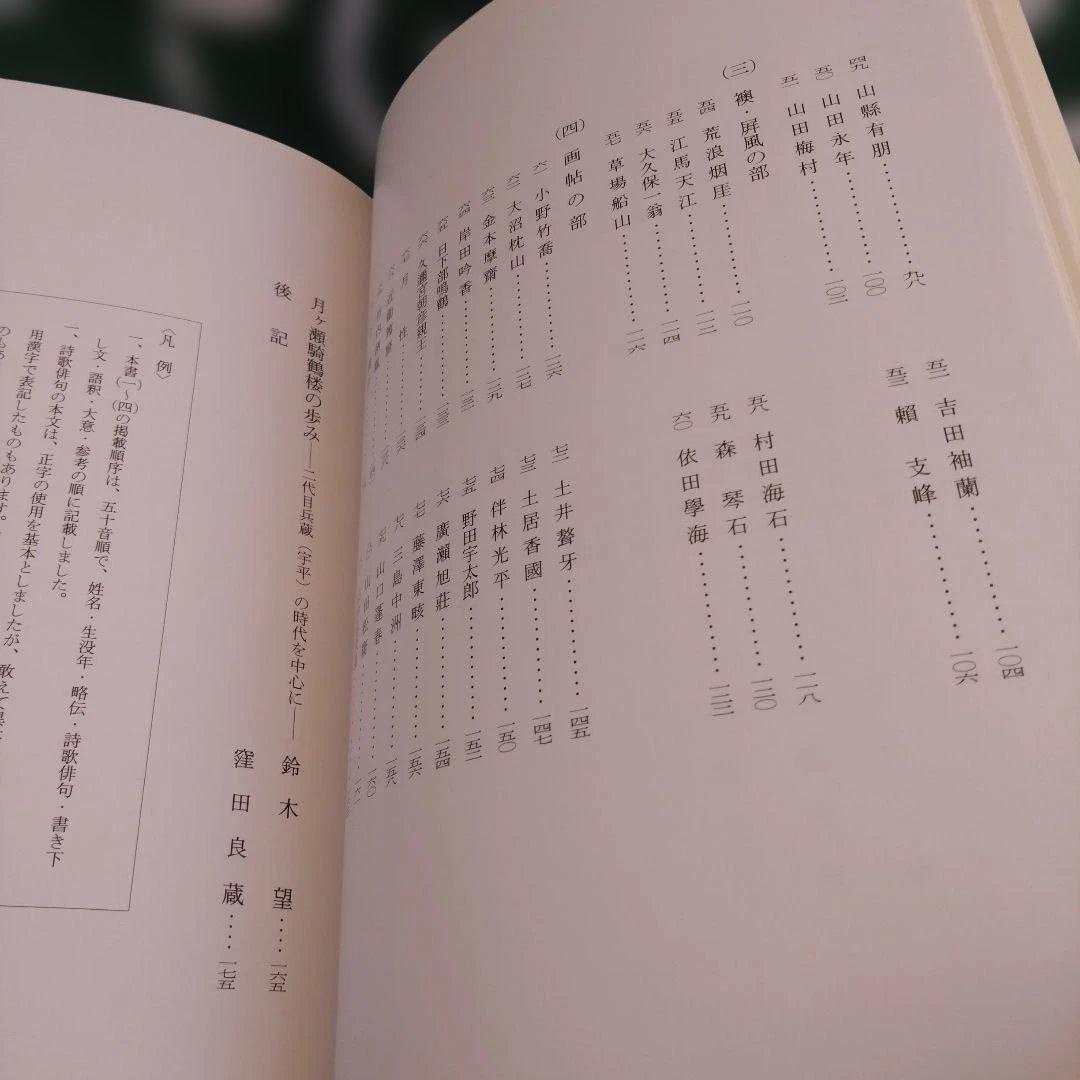 四九 山縣有朋……九八
五〇 山田永年……一〇〇
五一 山田梅村……一〇二
五二 吉田袖蘭……一〇四
五三 頼 支峰……一〇六
(三) 襖・屏風の部
五四 荒浪烟厓……一一〇
五五 江馬天江……一一二
五六 大久保一翁……一一四
五七 草場船山……一一六
五八 村田海石……一一八
五九 森 琴石……一二〇
六〇 依田學海……一二二
(四) 画帖の部
六一 小野竹喬……一二六
六二 大沼枕山……一二七
六三 金本摩齋……一二九
六四 岸田吟香……一三一
六五 日下部鳴鶴……一三三
六六 久邇宮朝彦親王……一三四
六七 月 性……一三六
七二 土井聱牙……一四五
七三 土居香國……一四七
七四 伴林光平……一五〇
七五 野田宇太郎……一五二
七六 廣瀬旭莊……一五四
七七 藤澤東畡……一五六
七八 三島中洲……一五八
七九 山口蓬春……一六〇
月ヶ瀬騎鶴楼の歩み――二代目兵蔵(宇平)の時代を中心に―― 鈴木 望……一六五
後記 窪田良蔵……一七五
〈凡例〉
一、本書(一)~(四)の掲載順序は、五十音順で、姓名・生没年・略伝・詩歌俳句・書き下
し文・語釈・大意・参考の順に記載しました。
一、詩歌俳句の本文は、正字の使用を基本としましたが、敢えて
用漢字で表記したものもあります。